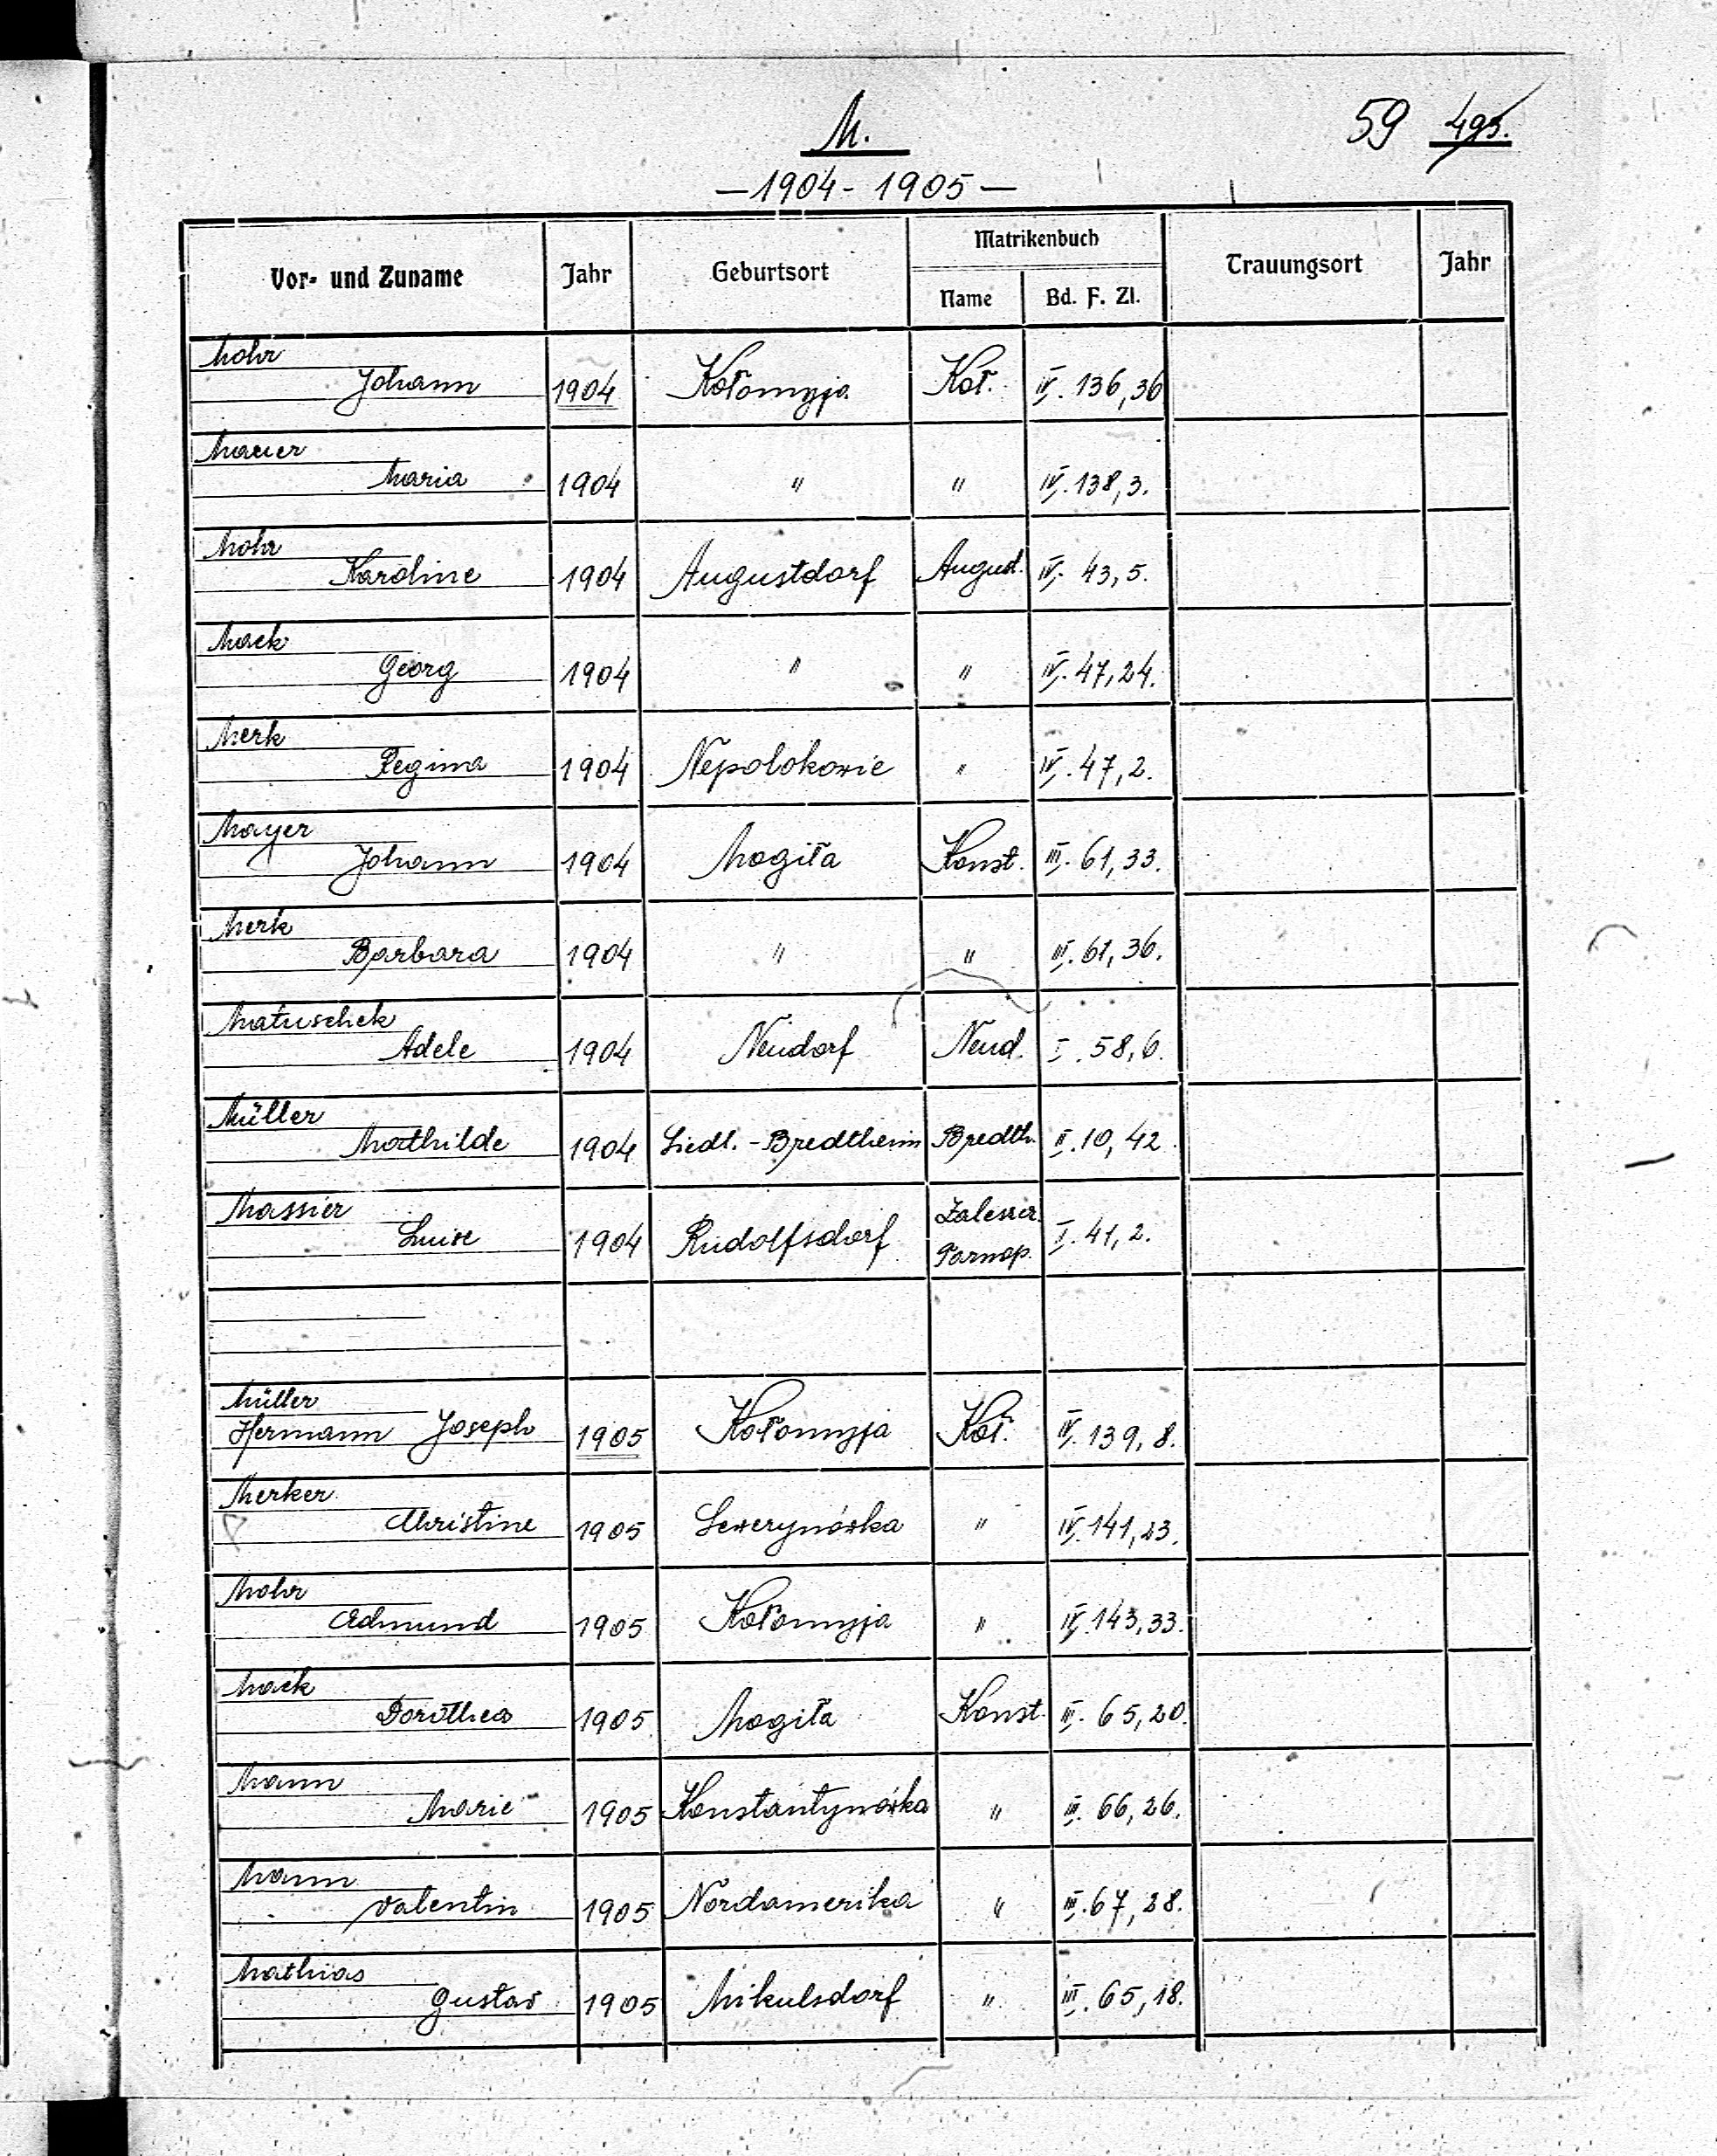 M.
59 495.
—1904-1905—
Vor- und Zuname Jahr Geburtsort Matrikenbuch Trauungsort Jahr
Name Bd. F. Zl.
Mohr
Johann 1904 Kołomyja Koł. IV. 136,36
Mauer
Maria 1904 " " IV. 138,3.
Mohr
Karoline 1904 Augustdorf August. IV. 43,5.
Mack
Georg 1904 " " IV. 47,24.
Merk
Regina 1904 Nepolokowie " IV. 47,2.
Mayer
Johann 1904 Mogiła Konst. III. 61,33.
Merk
Barbara 1904 " " III. 61,36.
Matuschek
Adele 1904 Neudorf Neud. I. 58,6.
Müller
Mathilde 1904 Siedl.-Bredtheim Bredth. II. 10,42.
Massier
Luise 1904 Rudolfsdorf Zaleszcz. Tarnop. I. 41,2.
Müller
Hermann Joseph 1905 Kołomyja Koł. IV. 139,8.
Merker
Christine 1905 Sewerynówka " IV. 141,23.
Mohr
Edmund 1905 Kołomyja " IV. 143,33.
Mack
Dorothea 1905 Mogiła Konst. III. 65,20.
Mann
Marie 1905 Konstantynówka " III. 66,26.
Mann
Valentin 1905 Nordamerika " III. 67,28.
Mathias
Gustav 1905 Mikulsdorf " III. 65,18.